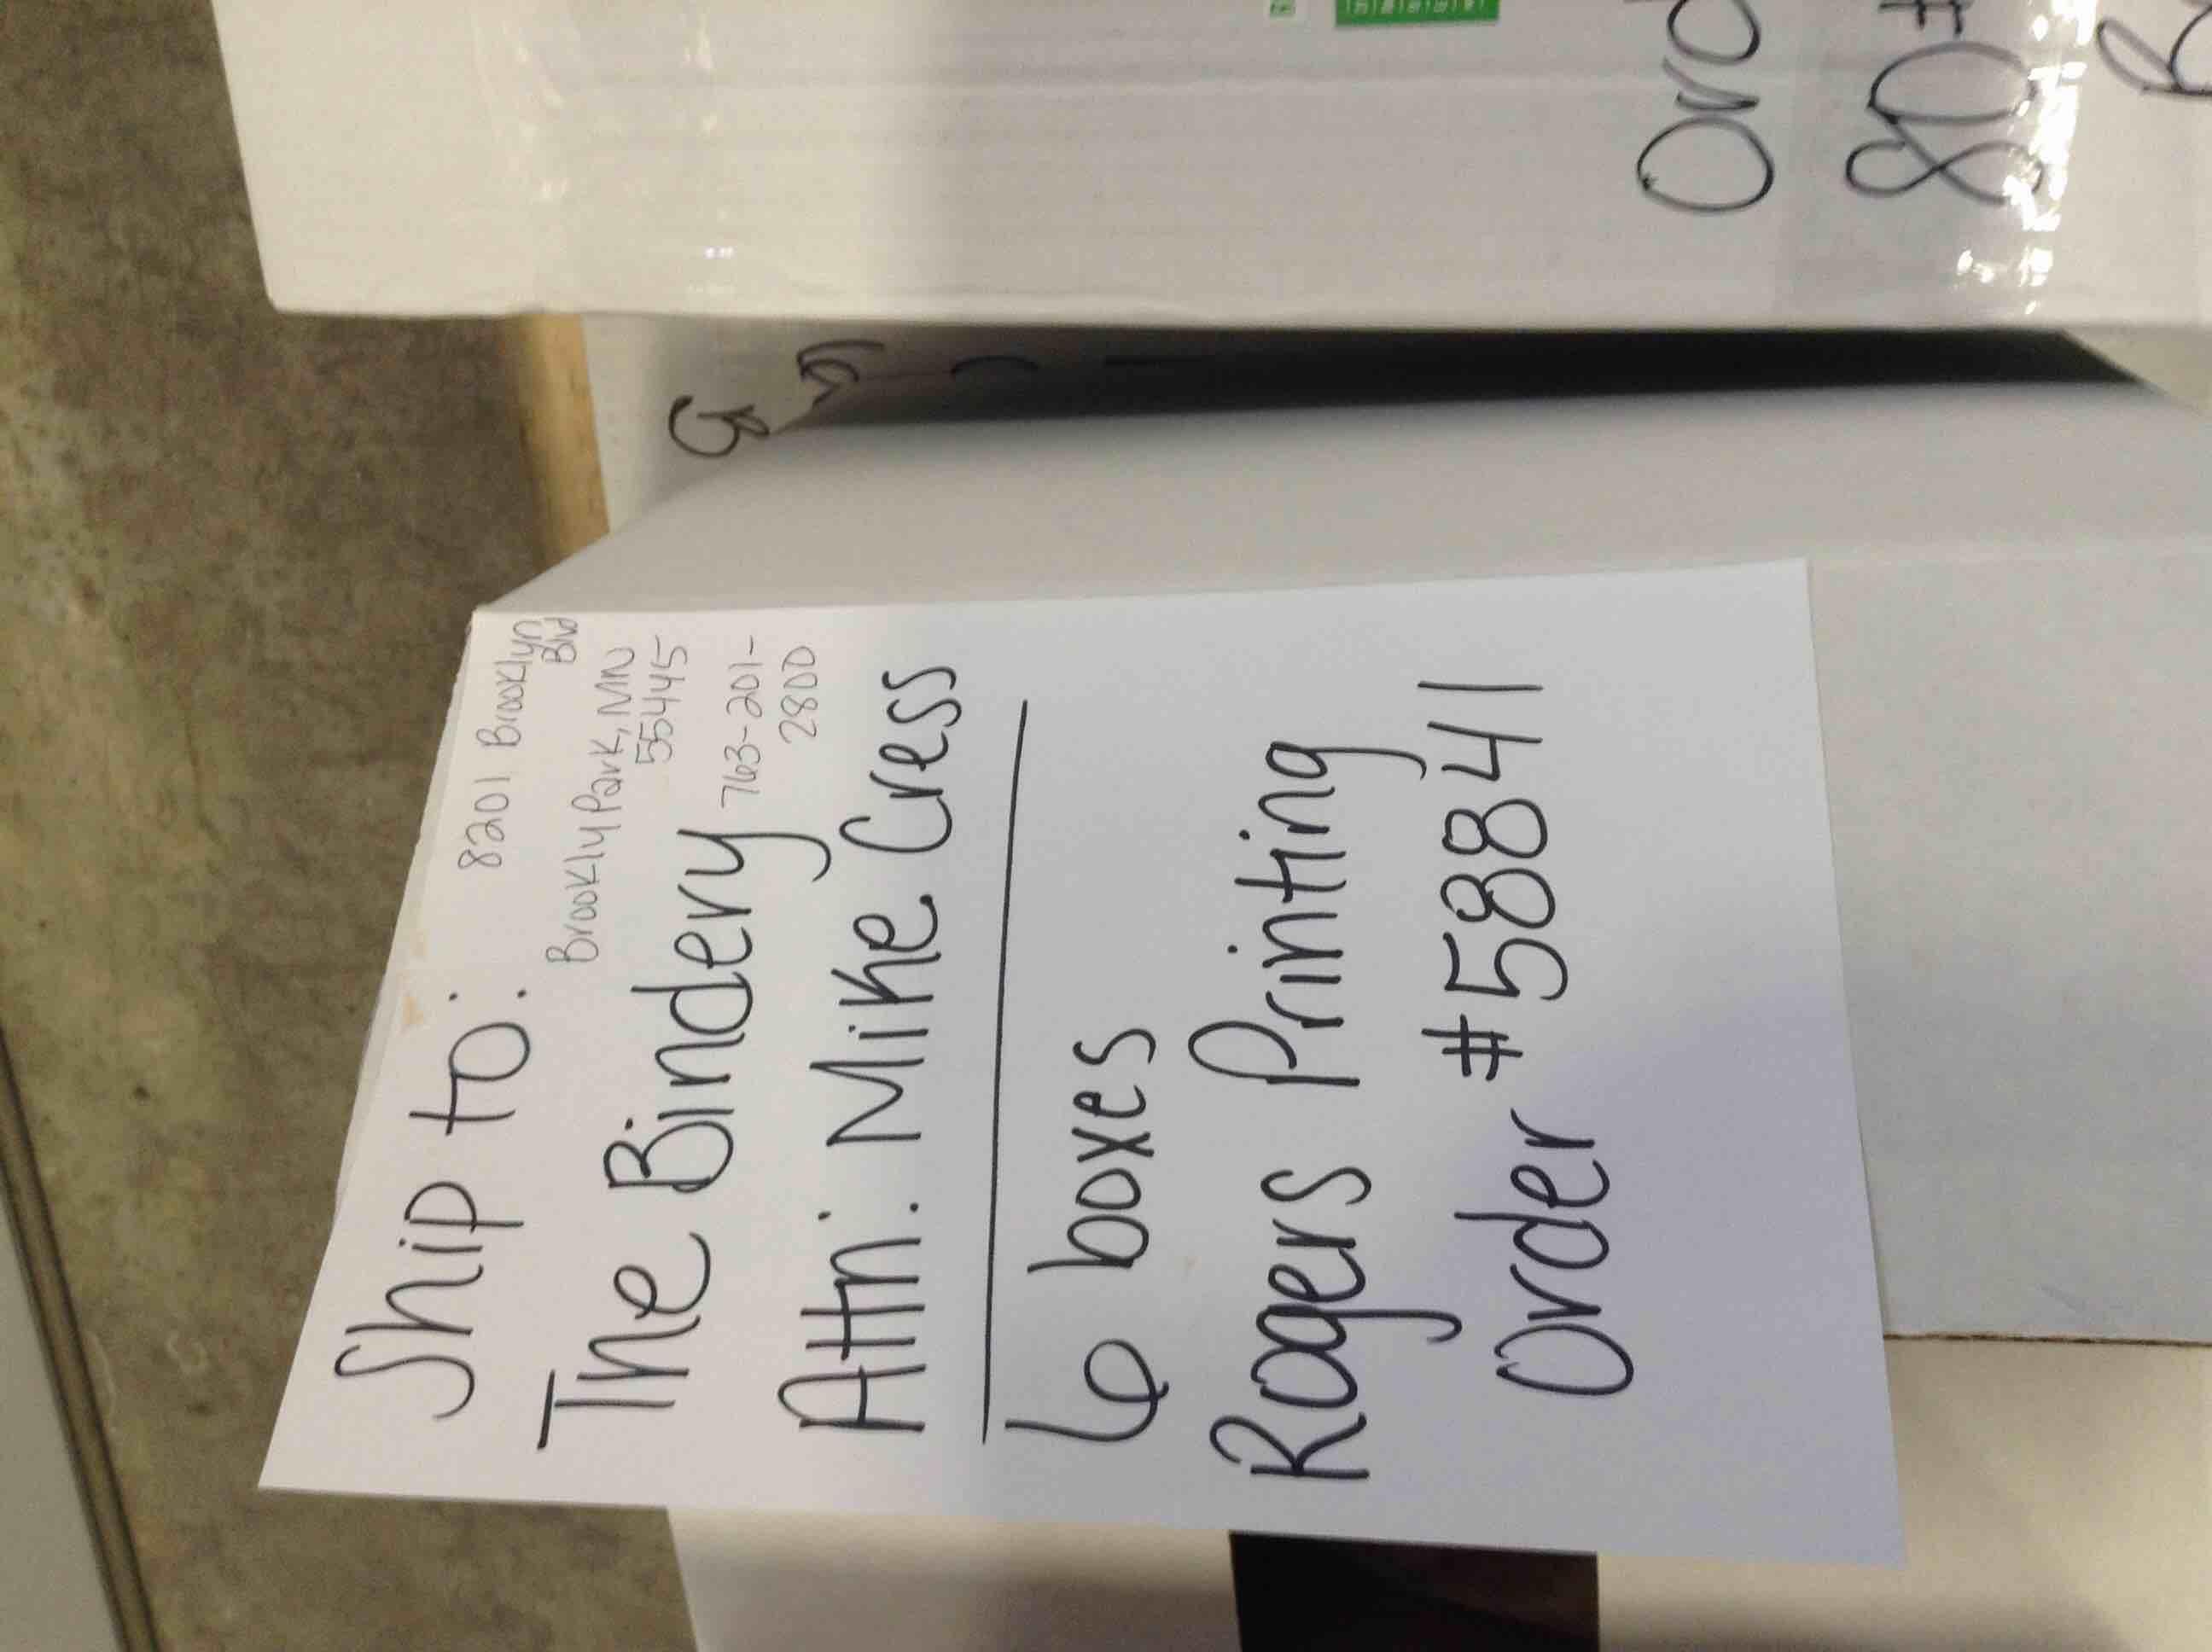 Ship to:
8201 Brooklyn
Blvd
Brooklyn Park, MN
55445
763-201-
2800
The Bindery
Attn: Mike Cress
6 boxes
Rogers Printing
Order #58841
80#